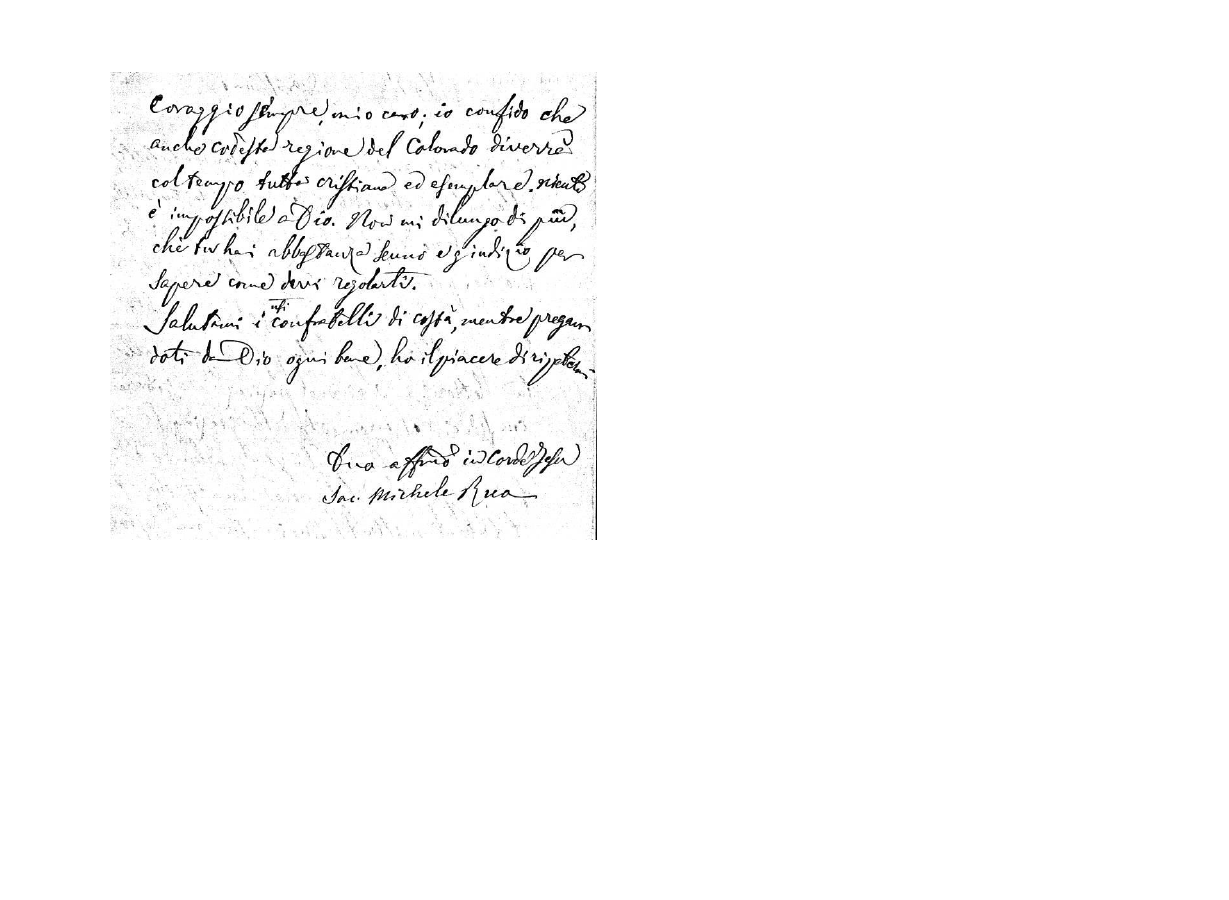 Coraggio sempre, mio caro; io confido che
anche codesta regione del Colorado diverrà
col tempo tutta cristiana ed esemplare. niente
è impossibile a Dio. Non mi dilungo di più,
chè tu hai abbastanza senno e giudizio per
sapere come devi regolarti.
Salutami i confratelli di costà, mentre pregan
doti da Dio ogni bene, ho il piacere di
Tuo affmo in Corde Jesu
Sac. Michele Rua